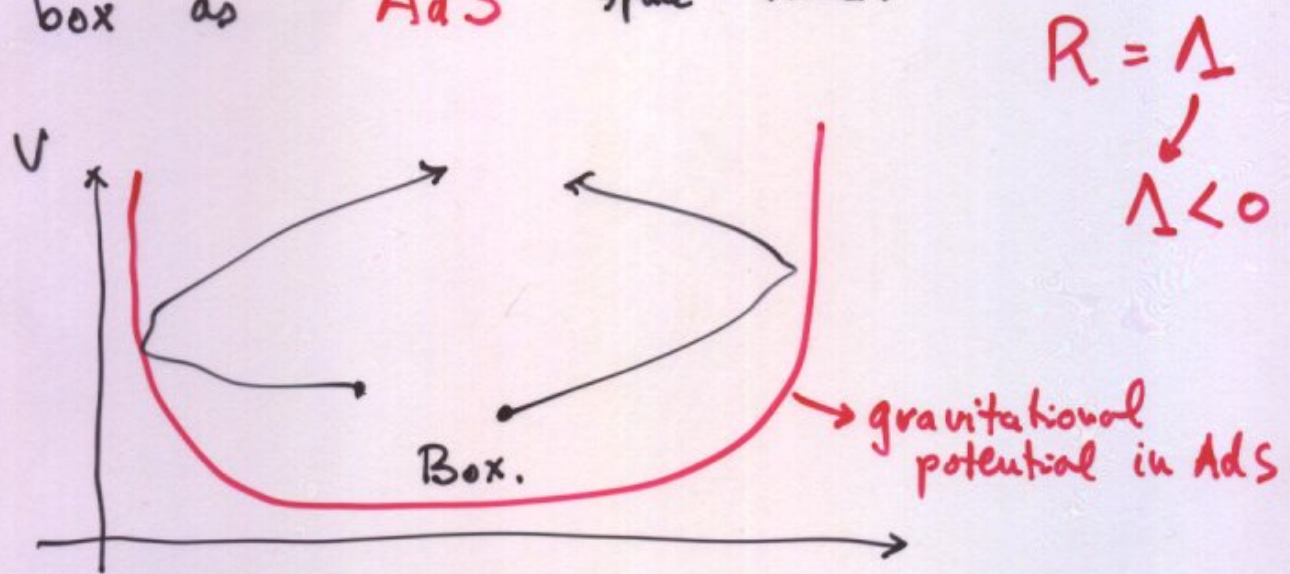 box as AdS
R = Λ
Λ < 0
V
Box.
gravitational
potential in AdS